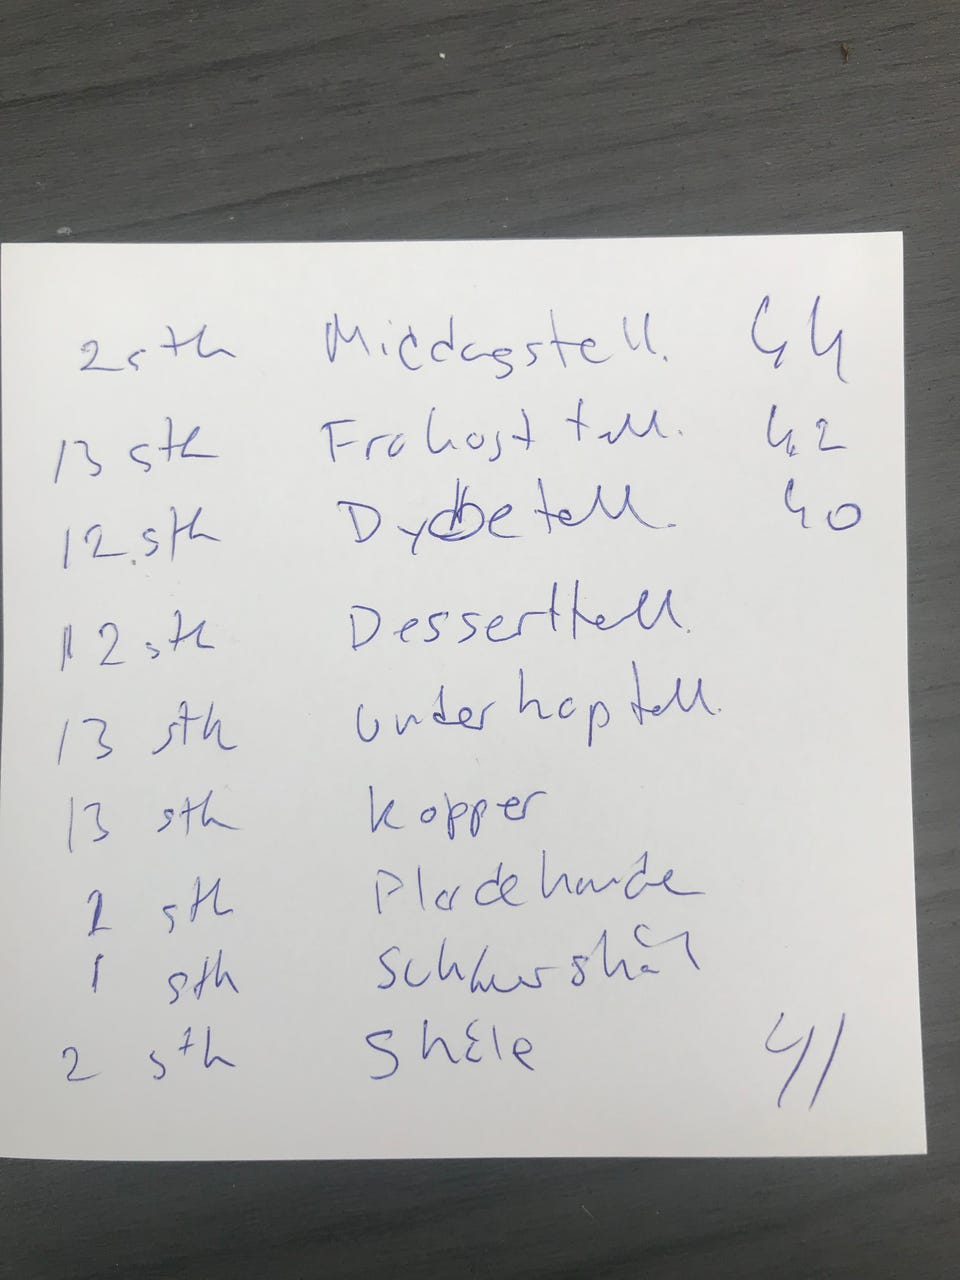 2 stk Middagstell. 44
13 stk Frokost tall. 42
12 stk Dybetall. 40
12 stk Desserttall.
13 stk underkoptall.
13 stk Kopper
stk Pladekande
1 stk Sukkerskål
2 stk Skåle 41